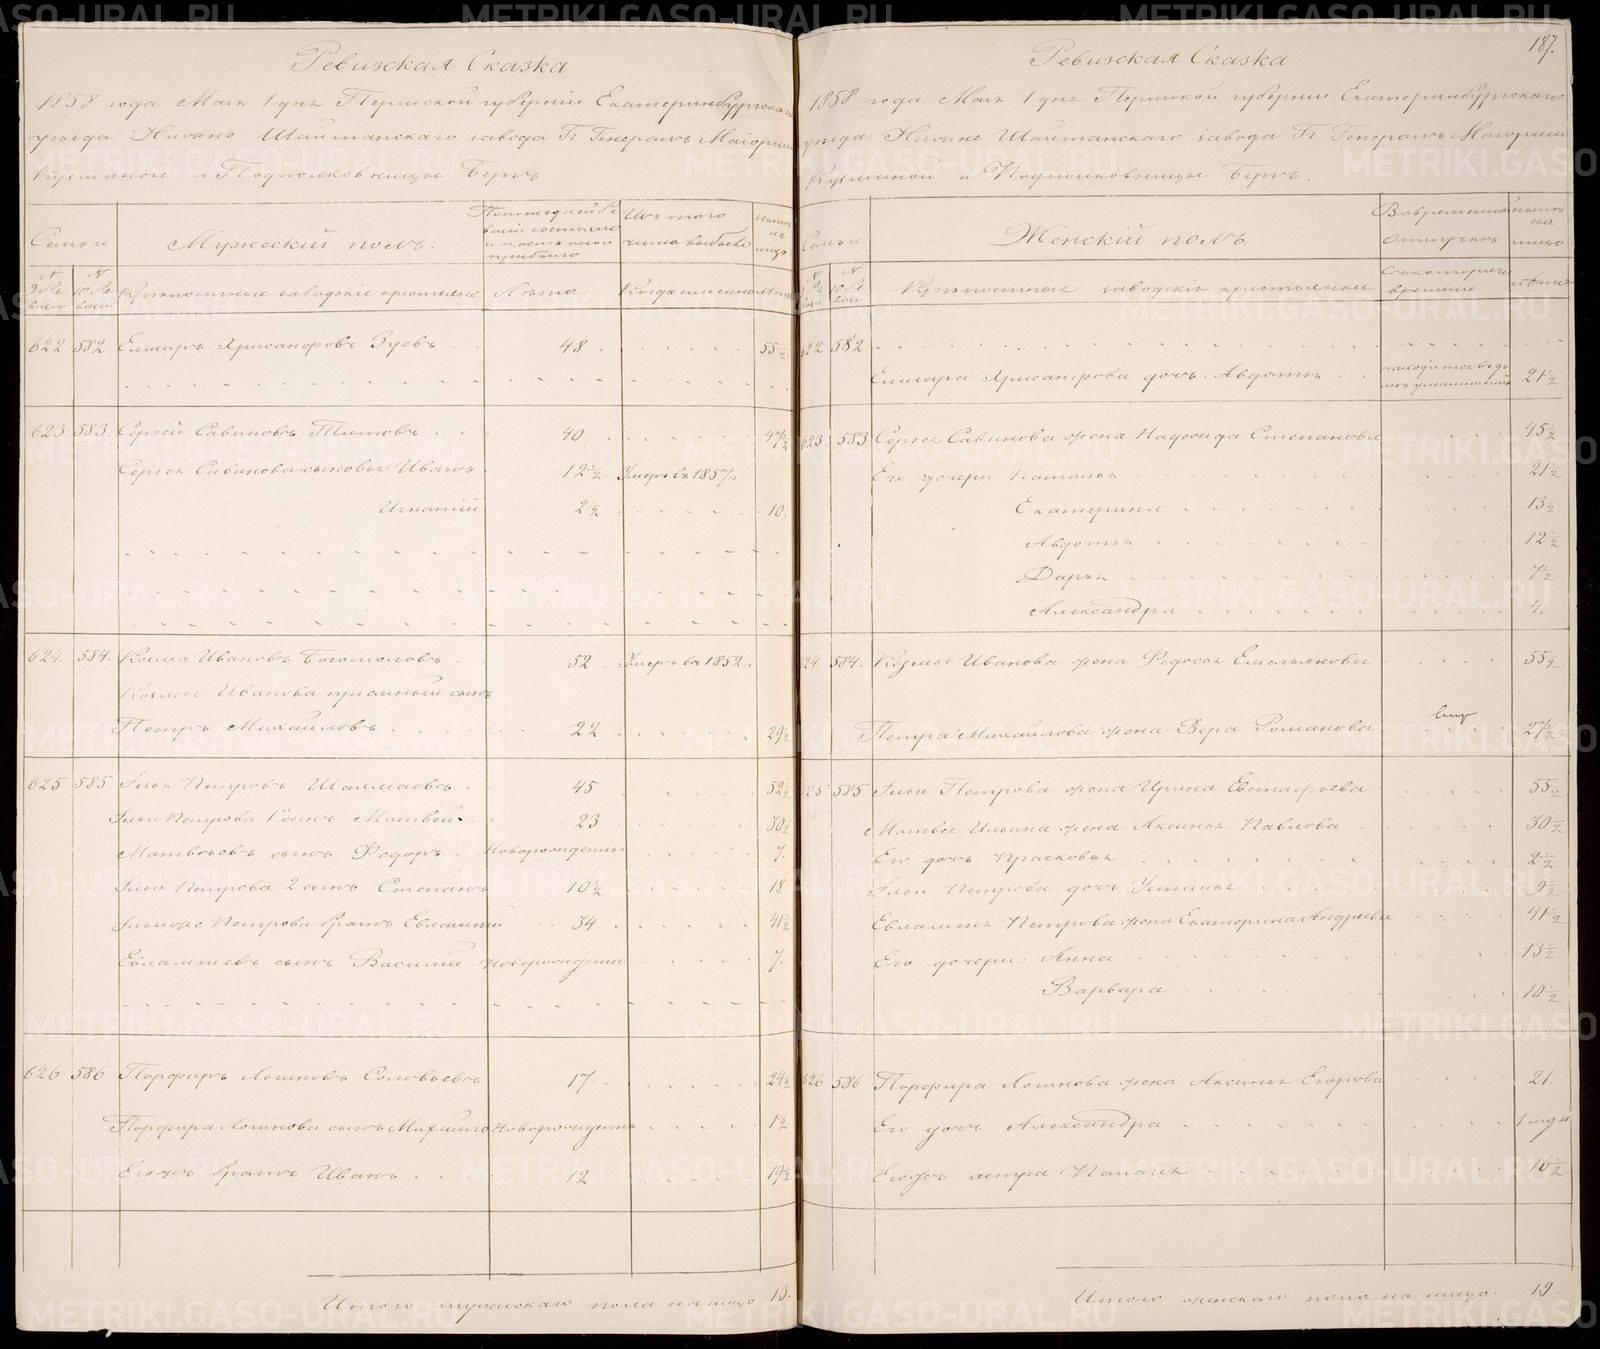 Ревизская Сказка
1858 года Маія 1 дня Пермской губерніи Екатеринбургскаго
уезда Нижне Шайтанскаго завода Гг Генералъ Маіорши
Кузьминой и Подполковницы Бергъ
Семьи
Мужескій полъ.
По последней ревизіи состояло и после оной прибыло
Изъ того числа выбыло
ныне на лицо
№ 9 Ревизіи
№ 10 Ревизіи
Крепостные заводскіе крестьяне
Лета
Когда именно
лета
622 582 Елизаръ Хрисанфовъ Зуевъ 48 55 1/2
623 583. Сергей Савиновъ Титовъ 40 47 1/2
Сергея Савинова сыновья Иванъ 12 1/2 Умеръ въ 1857 г.
Игнатій 2 1/2 10.
624. 584. Козма Ивановъ Богомоловъ 52 Умеръ въ 1852 г
Козмы Иванова пріемный сынъ
Петръ Михайловъ 22 29 1/2
625 585 Илья Петровъ Шалмаевъ 45 52 1/2
Ильи Петрова 1 сынъ Матвей 23 30 1/2
Матвеевъ сынъ Федоръ Новорожденный 7.
Ильи Петрова 2 сынъ Степанъ 10 1/2 18
Ильи же Петрова братъ Евлампій 34 41 1/2
Евлампіевъ сынъ Василій Новорожденный 7.
626 586 Порфиръ Логиновъ Соловьевъ 17 24 1/2
Порфира Логинова сынъ Михайло Новорожденный 1/2
Его жъ братъ Иванъ 12 19 1/2
Итого мужескаго пола на лицо 13.
187.
Ревизская Сказка
1858 года Маія 1 дня Пермской губерніи Екатеринбургскаго
уезда Нижне Шайтанскаго завода Гг Генералъ Маіорши
Кузьминой и Подполковницы Бергъ.
Семьи
Женскій полъ
Во временной отлучке
ныне на лицо
№ 9 Ревизіи
№ 10 Ревизіи
Крепостныя заводскія крестьянки
Съ котораго времени
лета
622 582
Елизара Хрисанфова дочь Авдотья 21 1/2
623 583 Сергея Савинова жена Надежда Степанова 45 1/2
Его дочери Наталья 21 1/2
Екатерина 13 1/2
Авдотья 12 1/2
Дарья 7 1/2
Александра 4.
624. 584. Козмы Иванова жена Федосья Емельянова 55 1/2
Петра Михайлова жена Вера Романова 27 1/2
625 585 Ильи Петрова жена Ирина Евстафьева 55 1/2
Матвея Ильина жена Аксинья Павлова 30 1/2
Его дочь Прасковья 2 1/2
Ильи Петрова дочь Устинья 9 1/2
Евлампія Петрова жена Екатерина Андреева 41 1/2
Его дочери: Анна 13 1/2
Варвара 10 1/2
626 586 Порфира Логинова жена Аксинья Егорова 21.
Его дочь Александра 1 года
Его жъ сестра Палагея 16 1/2
Итого женскаго пола на лицо. 19.
METRIKI.GASO-URAL.RU